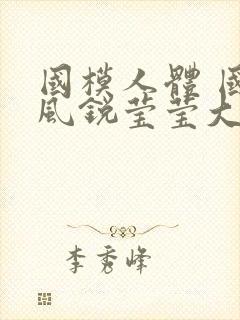 國模人體 國
風銳莹莹大
李秀峰